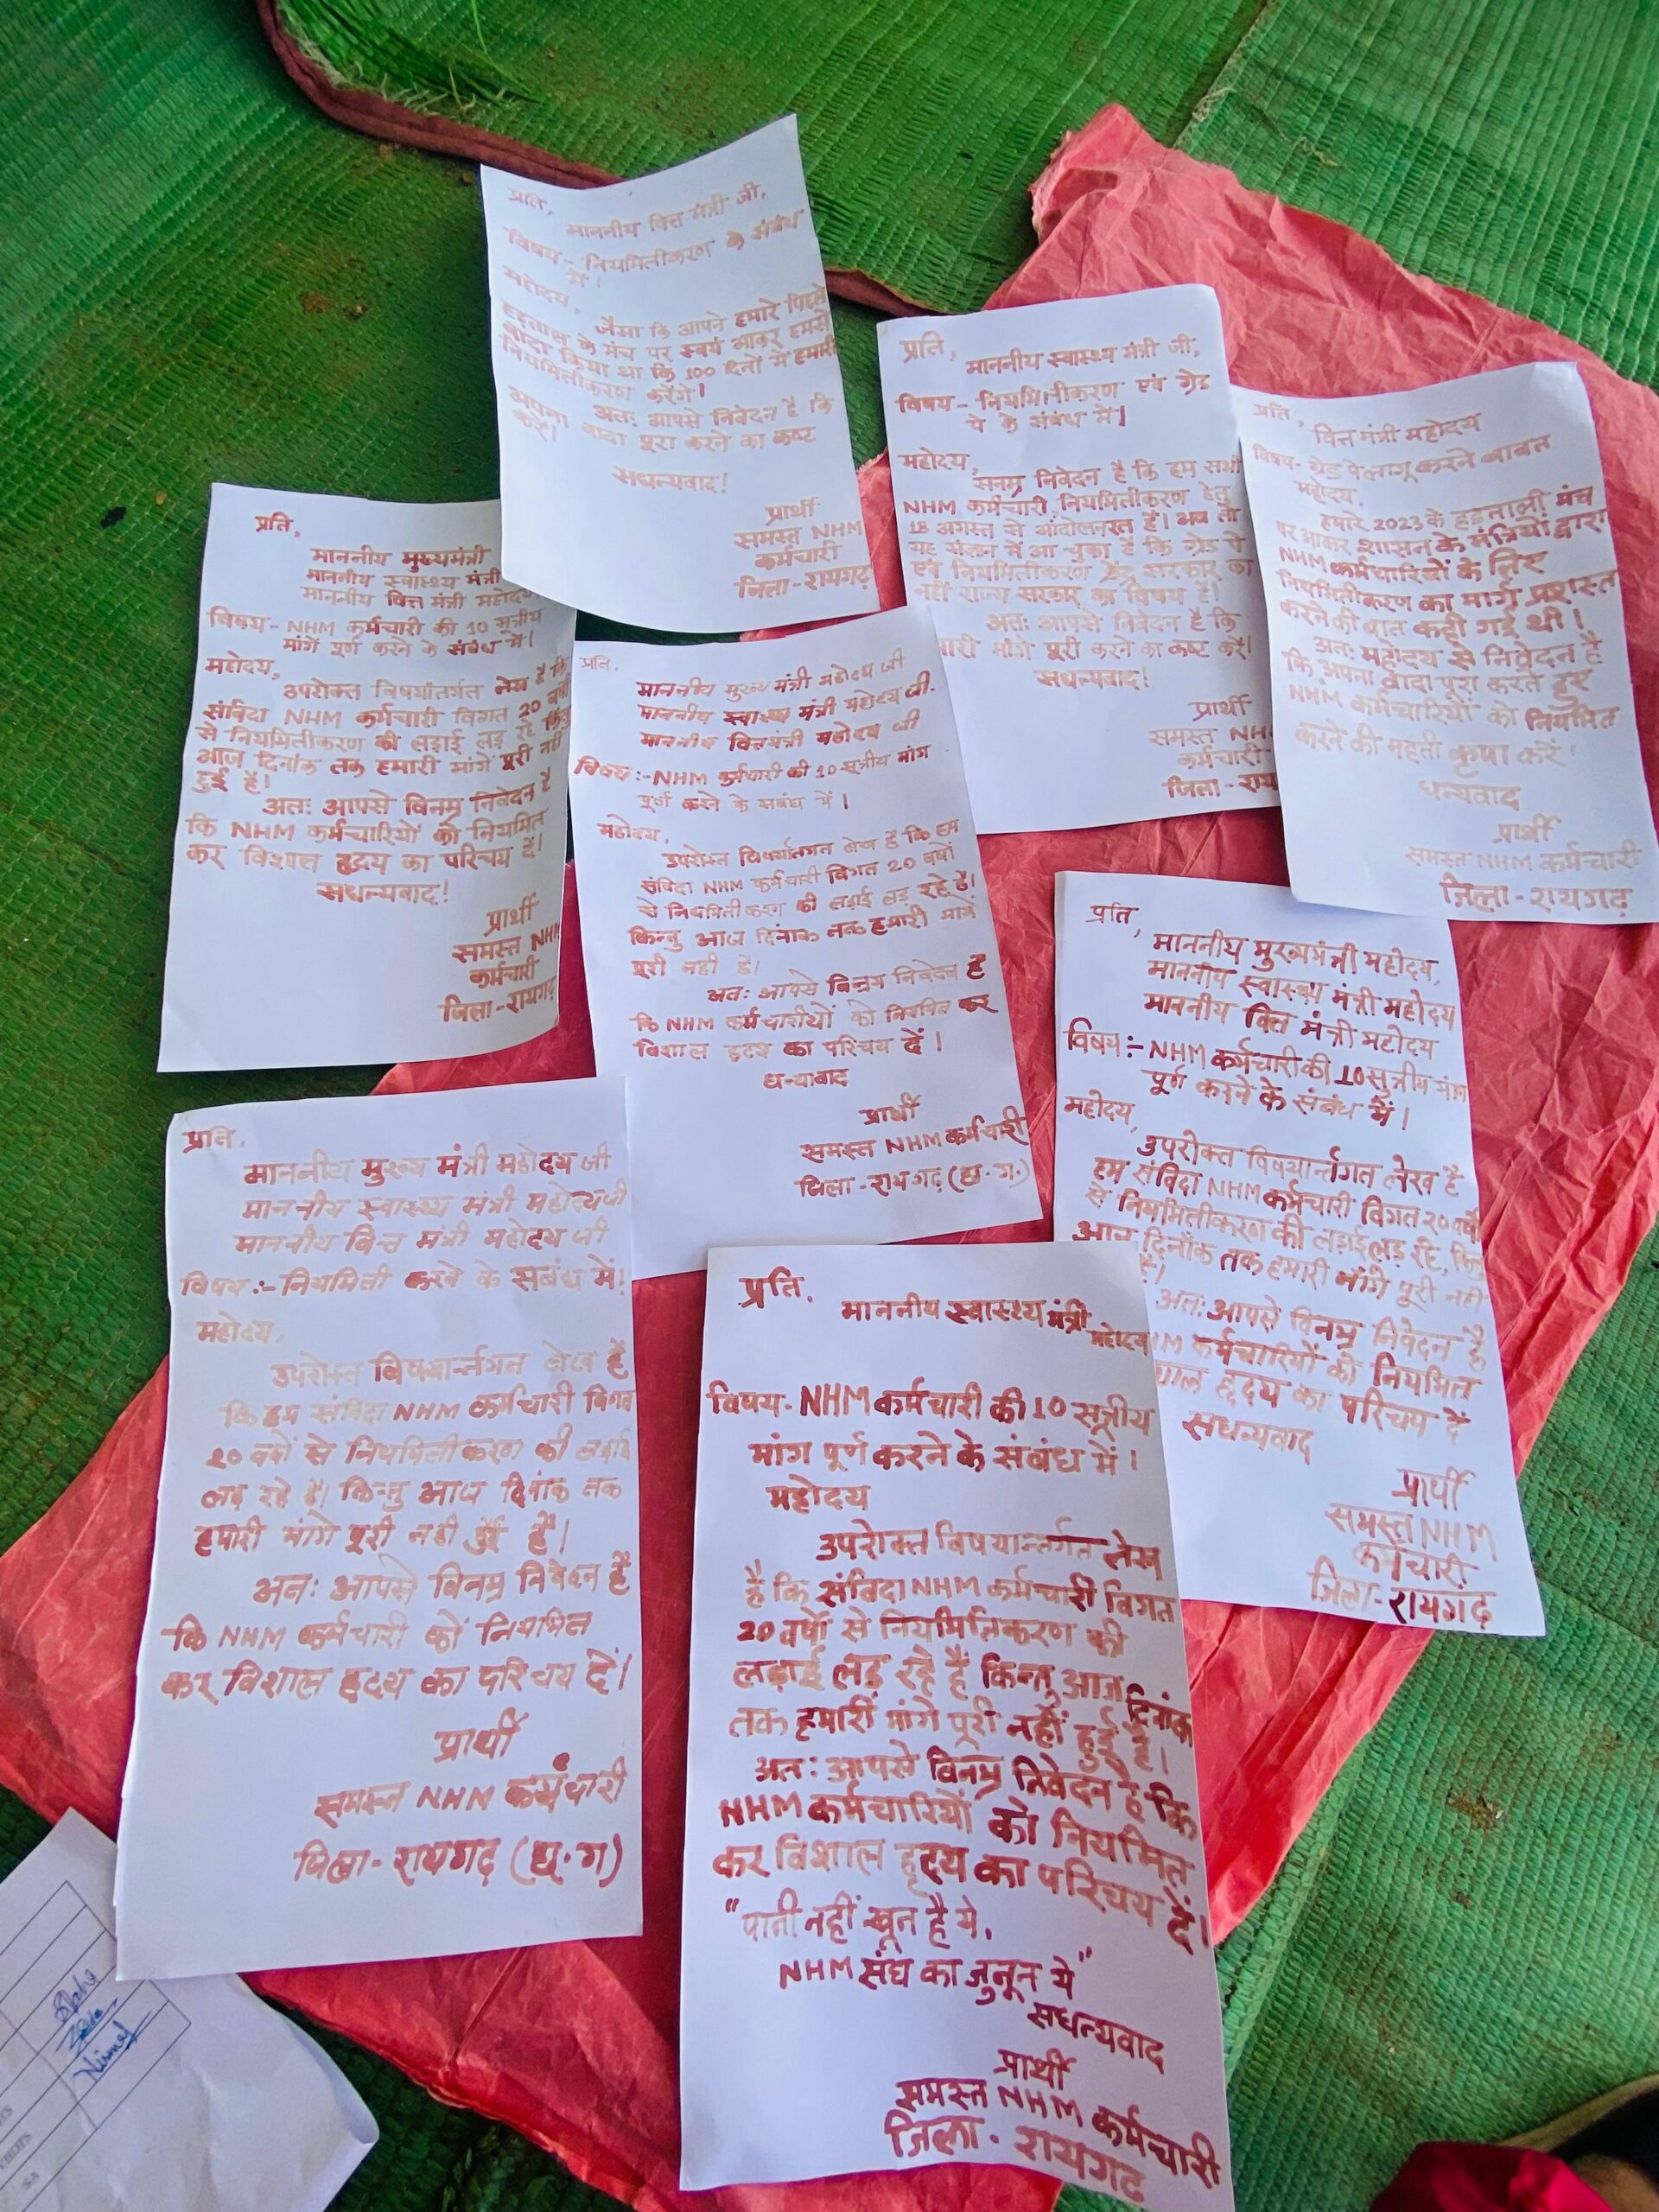 प्रति,
माननीय वित्त मंत्री जी,
विषय - नियमितीकरण के संबंध
में।
महोदय,
जैसा कि आपने हमारे पिछले
हड़ताल के मंच पर स्वयं आकर हमसे
वादा किया था कि 100 दिनों में हमारी
नियमितीकरण करेंगे।
अतः आपसे निवेदन है कि
अपना वादा पूरा करने का कष्ट
करें।
सधन्यवाद!
प्रार्थी
समस्त NHM
कर्मचारी
जिला - रायगढ़
प्रति,
माननीय स्वास्थ्य मंत्री जी,
विषय - नियमितीकरण एवं ग्रेड
पे के संबंध में।
महोदय,
सनम्र निवेदन है कि हम सभी
NHM कर्मचारी नियमितीकरण हेतु
18 अगस्त से आंदोलनरत हैं। अब तो
यह संज्ञान में आ चुका है कि ग्रेड पे
एवं नियमितीकरण केंद्र सरकार का
नहीं राज्य सरकार का विषय है।
अतः आपसे निवेदन है कि
मांगे पूरी करने का कष्ट करें।
सधन्यवाद!
प्रार्थी
समस्त NH
कर्मचारी
जिला - राय
प्रति,
वित्त मंत्री महोदय
विषय - ग्रेड पे लागू करने बाबत
महोदय,
हमारे 2023 के हड़ताली मंच
पर आकर शासन के मंत्रियों द्वारा
NHM कर्मचारियों के लिए
नियमितीकरण का मार्ग प्रशस्त
करने की बात कही गई थी।
अतः महोदय से निवेदन है
कि अपना वादा पूरा करते हुए
NHM कर्मचारियों को नियमित
करने की महती कृपा करें।
धन्यवाद
प्रार्थी
समस्त NHM कर्मचारी
जिला - रायगढ़
प्रति,
माननीय मुख्यमंत्री
माननीय स्वास्थ्य मंत्री
माननीय वित्त मंत्री महोदय
विषय - NHM कर्मचारी की 10 सूत्रीय
मांगें पूर्ण करने के संबंध में।
महोदय,
उपरोक्त विषयांतर्गत लेख है कि
संविदा NHM कर्मचारी विगत 20 वर्षों
से नियमितीकरण की लड़ाई लड़ रहे किंतु
आज दिनांक तक हमारी मांगे पूरी नहीं
हुई है।
अतः आपसे विनम्र निवेदन है
कि NHM कर्मचारियों को नियमित
कर विशाल हृदय का परिचय दें।
सधन्यवाद!
प्रार्थी
समस्त NHM
कर्मचारी
जिला - रायगढ़
प्रति,
माननीय मुख्य मंत्री महोदय जी
माननीय स्वास्थ्य मंत्री महोदय जी.
माननीय वित्तमंत्री महोदय जी
विषय :- NHM कर्मचारी की 10 सूत्रीय मांग
पूर्ण करने के सबंध में।
महोदय,
उपरोक्त विषयांतगत लेख है कि हम
संविदा NHM कर्मचारी विगत 20 वर्षों
से नियमितीकरण की लड़ाई लड़ रहे हैं।
किन्तु आज दिनांक तक हमारी मांगे
पूरी नही है।
अतः आपसे विनम्र निवेदन है
कि NHM कर्मचारीयों को नियमित कर
विशाल हृदय का परिचय दें।
धन्यावाद
प्रार्थी
समस्त NHM कर्मचारी
जिला - रायगढ़ (छ.ग.)
प्रति,
माननीय मुख्यमंत्री महोदय,
माननीय स्वास्थ्य मंत्री महोदय
माननीय वित्त मंत्री महोदय
विषय :- NHM कर्मचारी की 10 सूत्रीय मांग
पूर्ण करने के संबंध में।
महोदय,
उपरोक्त विषयान्र्तगत लेख है
हम संविदा NHM कर्मचारी विगत २० वर्षो
से नियमितीकरण की लड़ाई लड़ रहे, किंतु
आज दिनाँक तक हमारी माँगे पूरी नही
अतः आपसे विनम्र निवेदन है
कर्मचारियों को नियमित
हृदय का परिचय दें
सधन्यवाद
प्रार्थी
समस्त NHM
कर्मचारी
जिला - रायगढ़
प्रति,
माननीय मुख्य मंत्री महोदय जी
माननीय स्वास्थ्य मंत्री महोदय जी
माननीय वित्त मंत्री महोदय जी
विषय :- नियमिती करने के सबंध में।
महोदय,
उपरोक्त विषयार्न्तगत लेख है
कि हम संविदा NHM कर्मचारी विगत
20 वर्षो से नियमितीकरण की लड़ाई
लड़ रहे है। किन्तु आज दिनांक तक
हमारी मांगे पूरी नही हुई है।
अतः आपसे विनम्र निवेदन है
कि NHM कर्मचारी को नियमित
कर विशाल हृदय का परिचय दें।
प्रार्थी
समस्त NHM कर्मचारी
जिला - रायगढ़ (छ.ग)
प्रति,
माननीय स्वास्थ्य मंत्री
महोदय
विषय - NHM कर्मचारी की 10 सूत्रीय
मांग पूर्ण करने के संबंध में।
महोदय
उपरोक्त विषयान्तर्गत लेख
है कि संविदा NHM कर्मचारी विगत
20 वर्षो से नियमितिकरण की
लड़ाई लड़ रहे हैं किन्तु आज दिनांक
तक हमारी मांगे पूरी नहीं हुई है।
अतः आपसे विनम्र निवेदन है कि
NHM कर्मचारियों को नियमित
कर विशाल हृदय का परिचय दें।
"पानी नहीं खून है ये,
NHM संघ का जुनून ये"
सधन्यवाद
प्रार्थी
समस्त NHM कर्मचारी
जिला - रायगढ